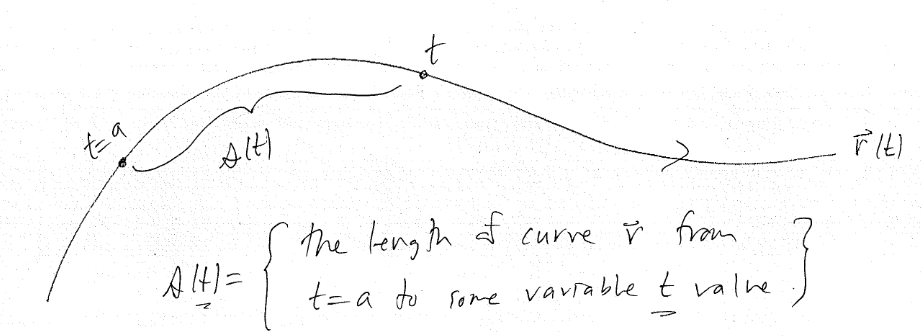 t
t=a
s(t)
r⃗(t)
s(t) = { the length of curve r⃗ from
t=a to some variable t value. }